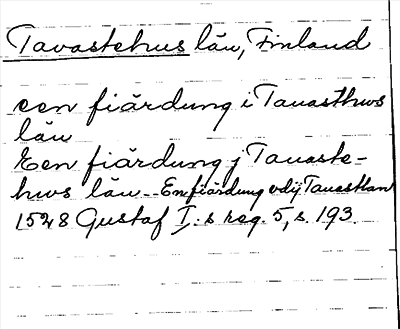 Tavastehus län, Finland
een fiärdung i Tauasthws
län
Een fiärdung j Tauaste-
hws län - En fiärdung vdij Tauastlan
1528 Gustaf I:s reg. 5, s. 193.